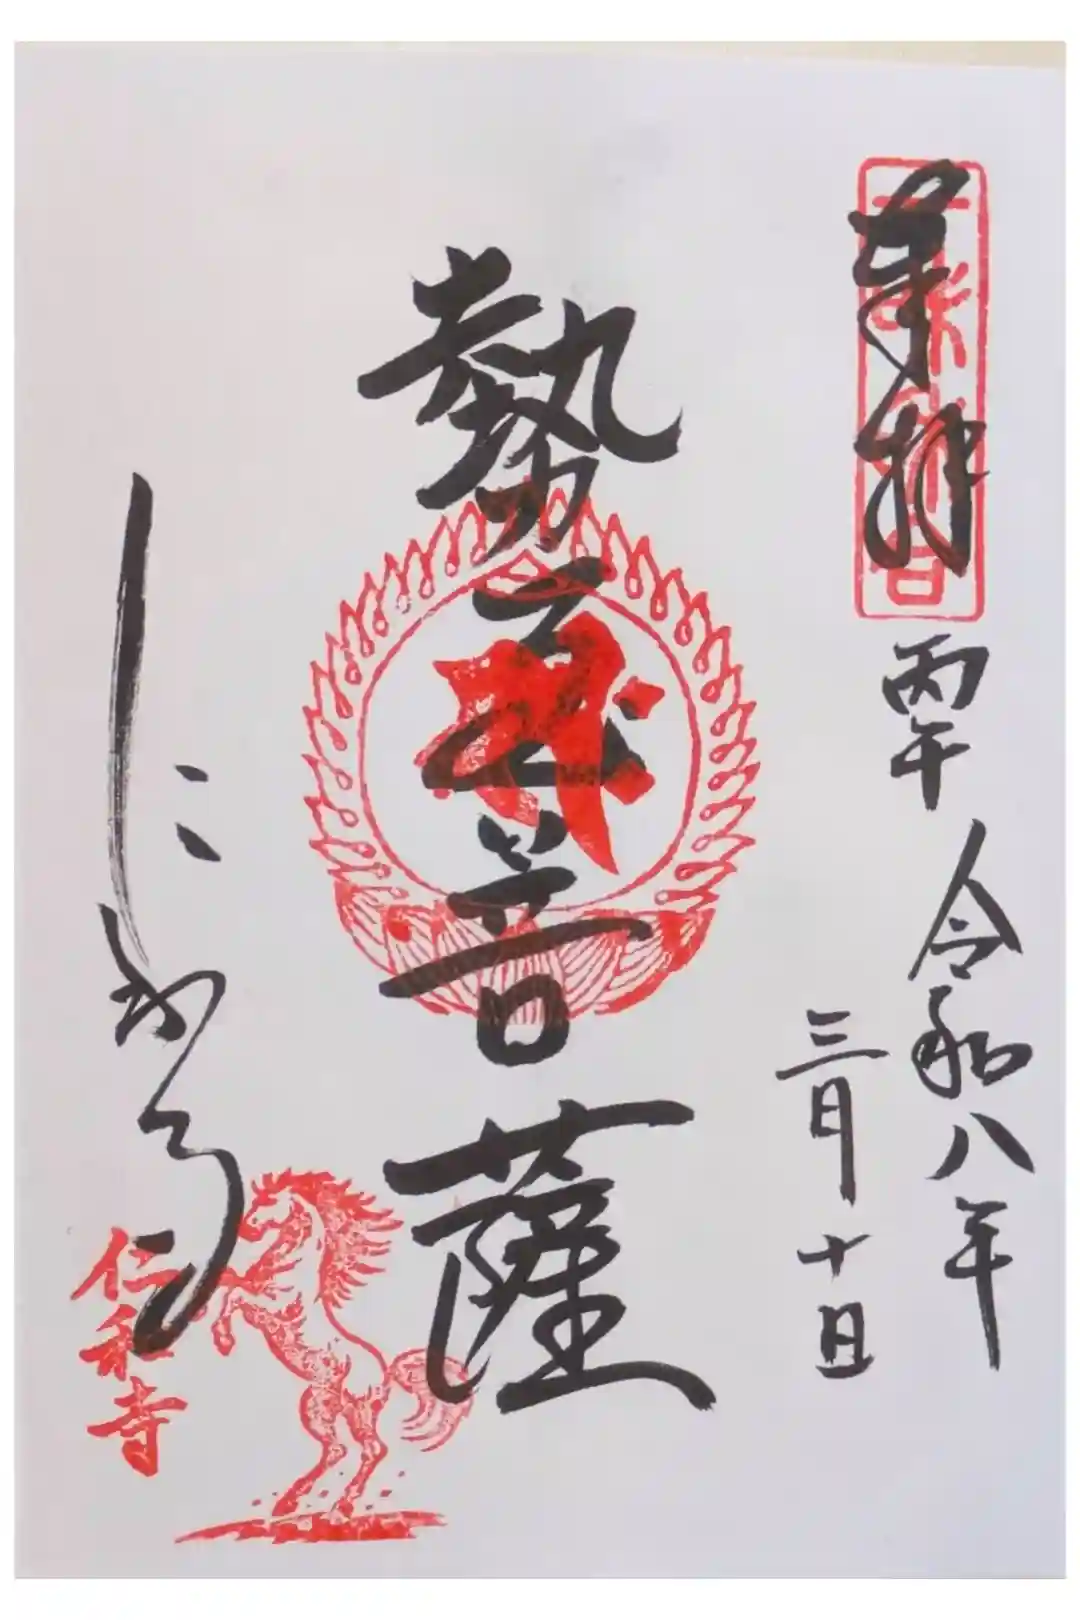 奉拝
丙午
令和八年
三月十日
勢至菩薩
仁和寺